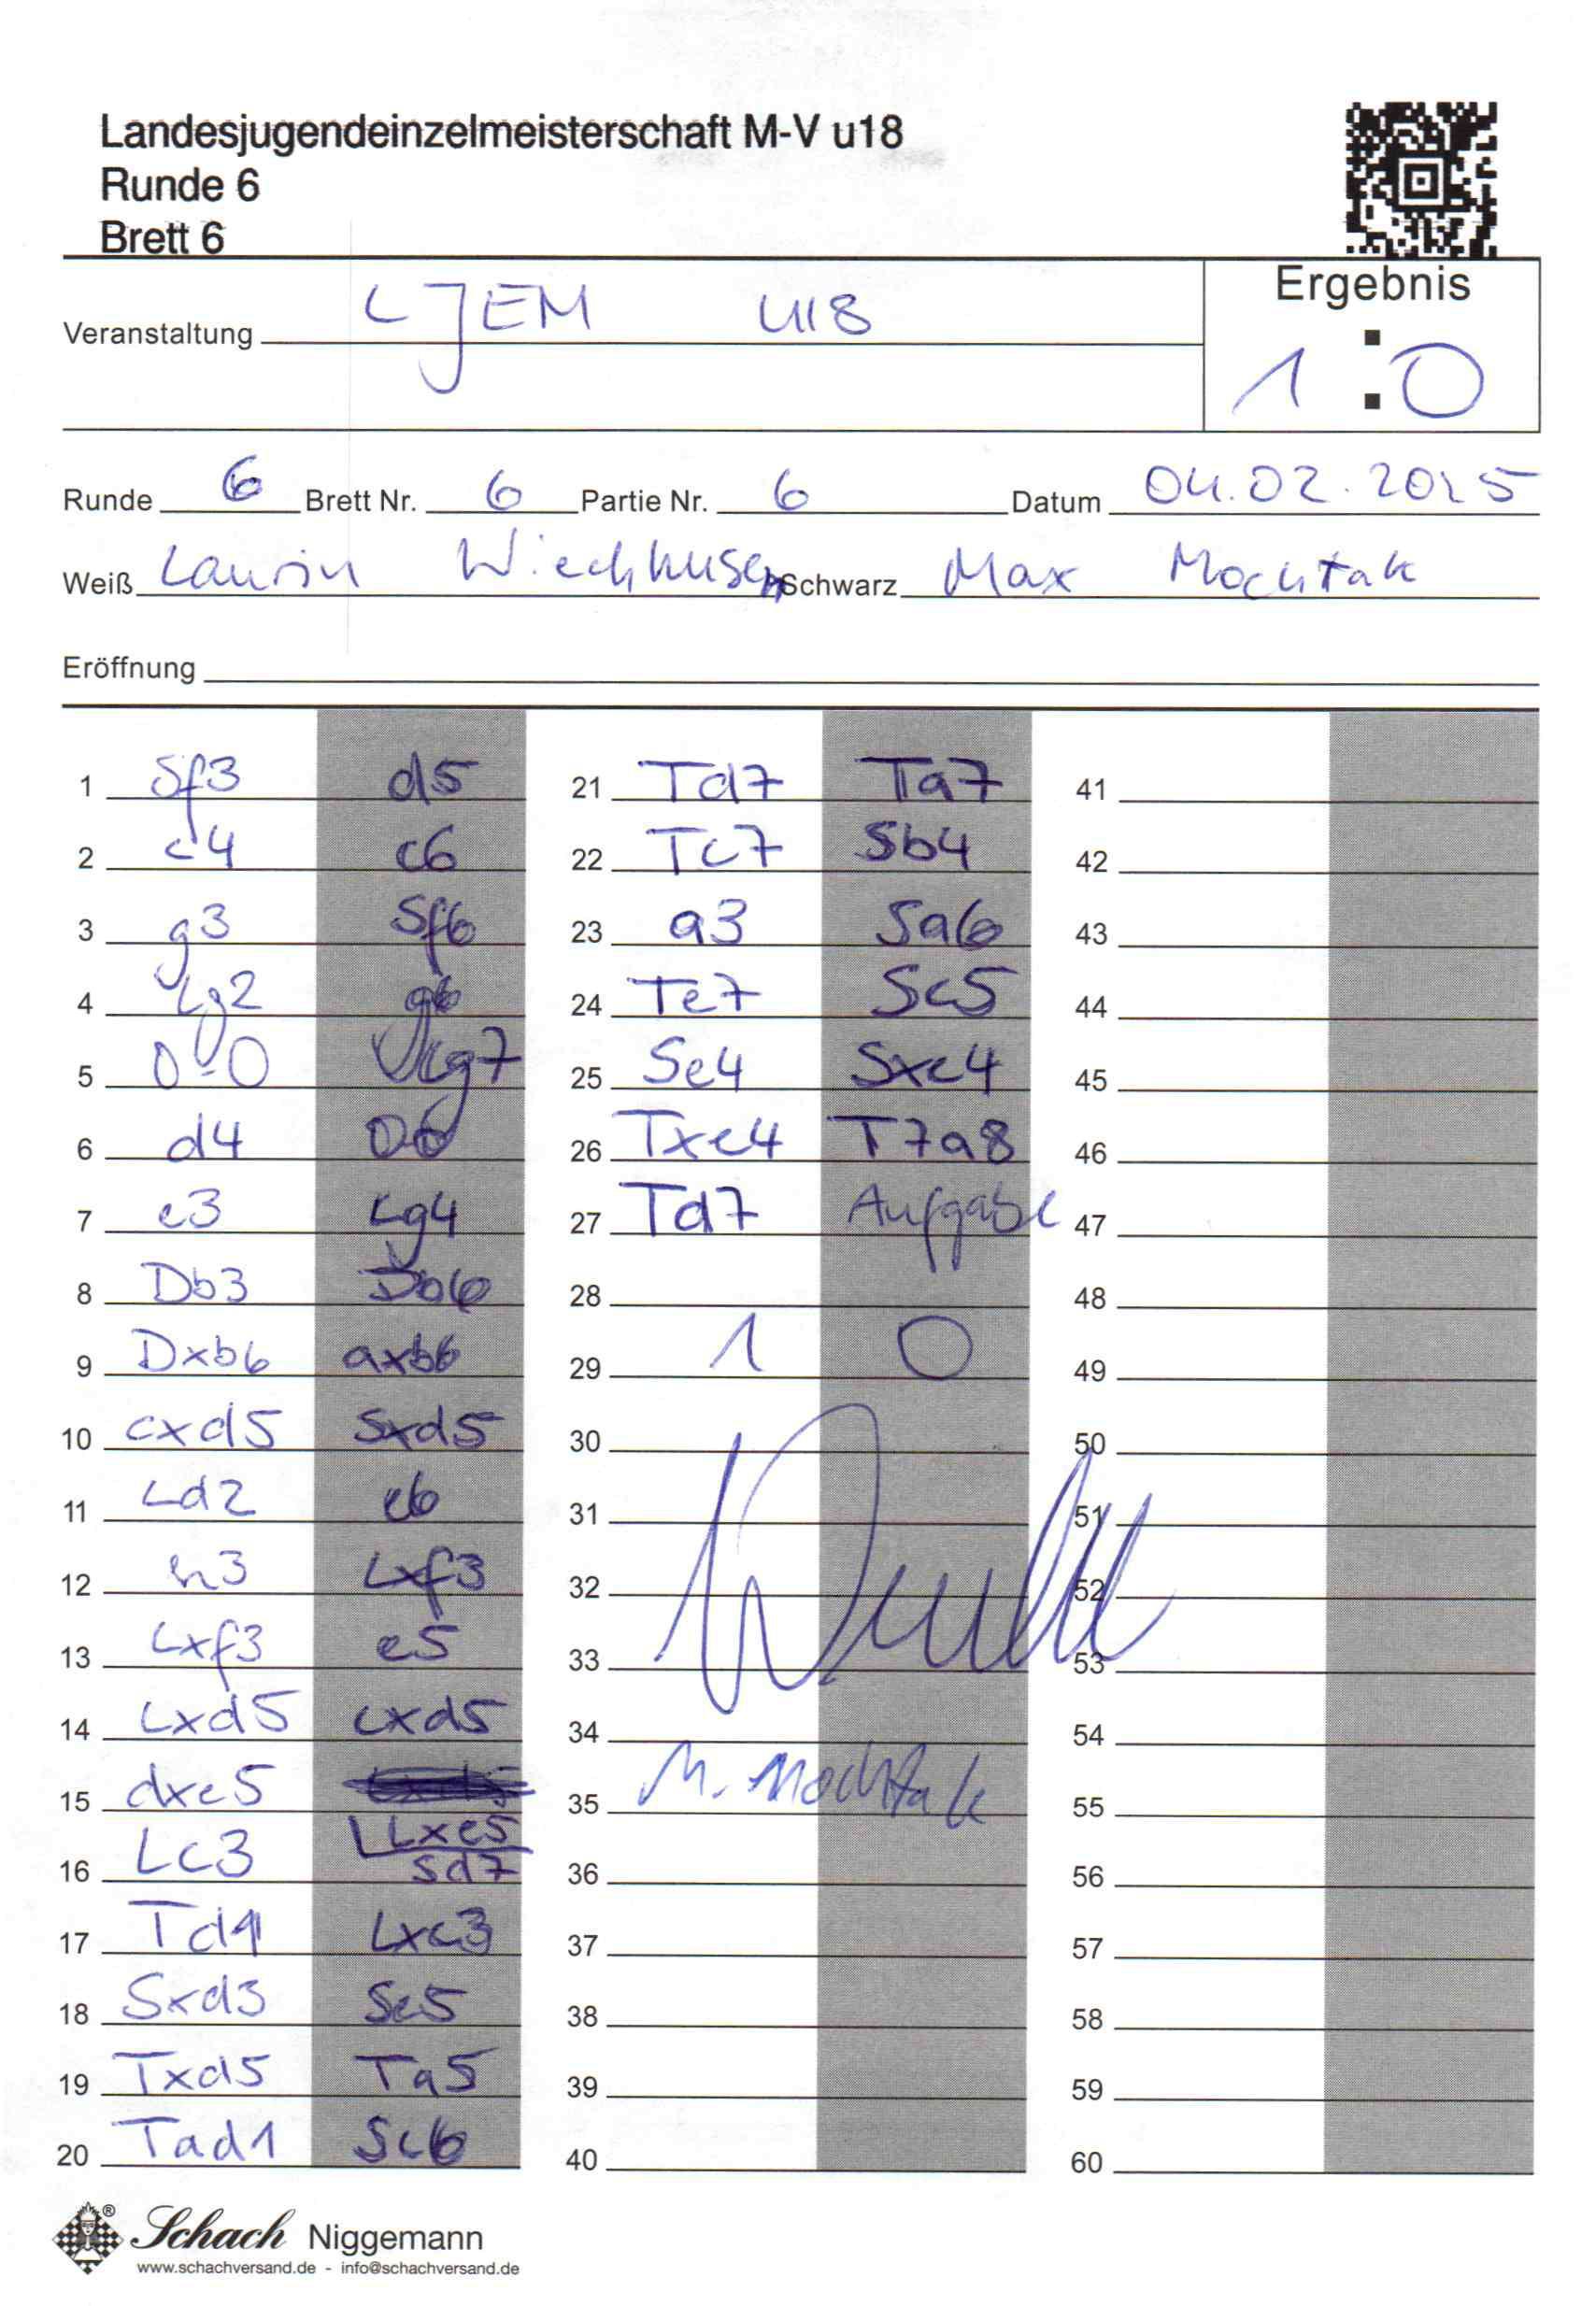 Landesjugendeinzelmeisterschaft M-V u18
Runde 6
Brett 6
Ergebnis
Veranstaltung LJEM U18
1 : 0
Runde 6 Brett Nr. 6 Partie Nr. 6 Datum 04.02.2025
Weiß Laurin Wiechhusen Schwarz Max Mochtak
Eröffnung
1 Sf3 d5
2 c4 c6
3 g3 Sf6
4 Lg2 g6
5 0-0 Lg7
6 d4 0-0
7 e3 Lg4
8 Db3 Db6
9 Dxb6 axb6
10 cxd5 Sxd5
11 Ld2 e6
12 h3 Lxf3
13 Lxf3 e5
14 Lxd5 cxd5
15 dxe5
Lxe5
16 Lc3 Sd7
17 Td1 Lxc3
18 Sxd3 Se5
19 Txd5 Ta5
20 Tad1 Sc6
21 Td7 Ta7
22 Tc7 Sb4
23 a3 Sa6
24 Te7 Sc5
25 Se4 Sxe4
26 Txe4 T7a8
27 Td7 Aufgabe
28
29 1 0
30
31
32
33
34
35 M. Mochtak
36
37
38
39
40
41
42
43
44
45
46
47
48
49
50
51
52
53
54
55
56
57
58
59
60
Schach Niggemann
www.schachversand.de - info@schachversand.de